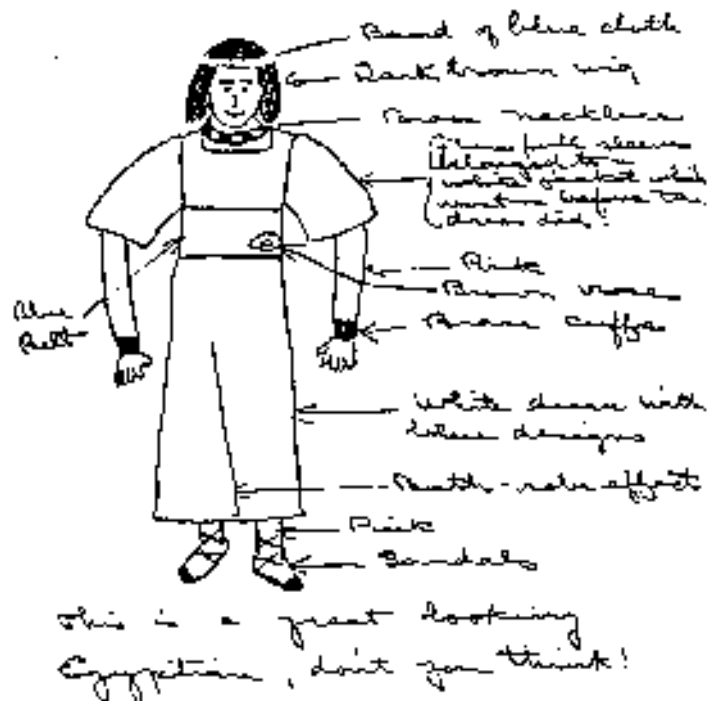 Band of blue cloth
Dark brown wig
necklace
These full sleeves
belonged to a
white jacket which
went on before the
dress did!
Pink
Brown
Blue
Belt
cuffs
White dress with
blue designs
effect
Pink
Sandals
This is a great looking
Egyptian, don't you think!